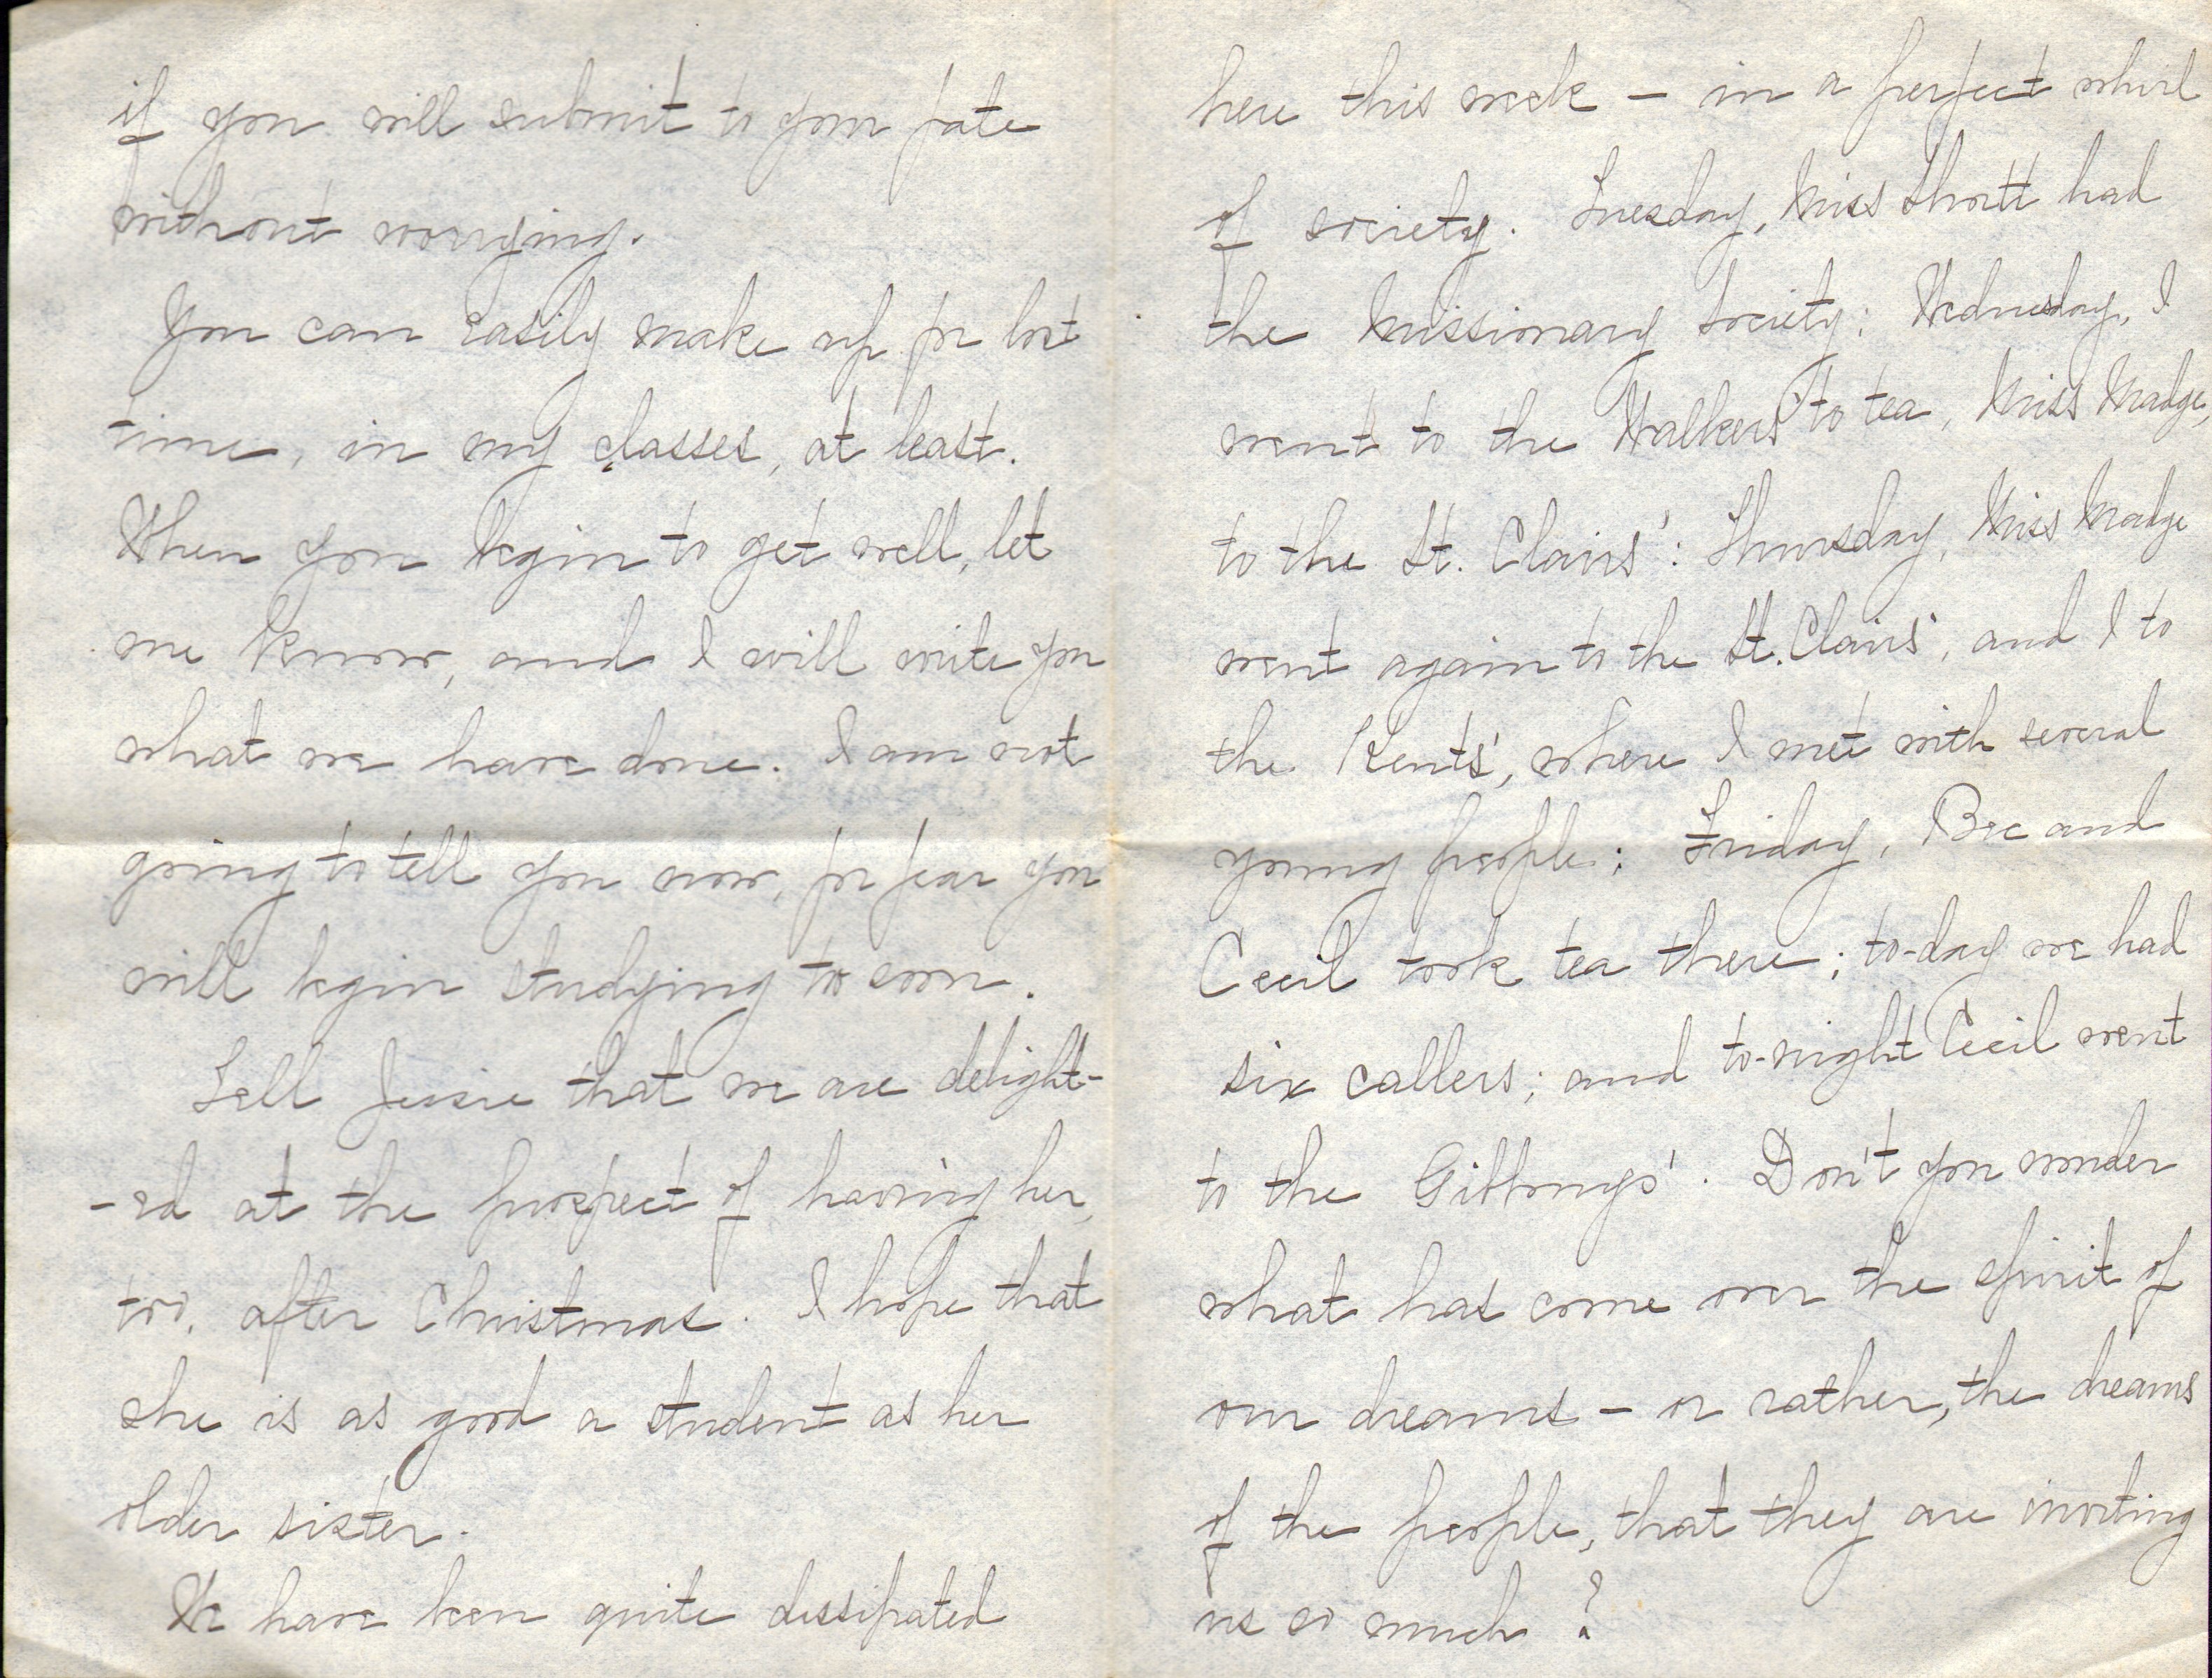 if you will submit to your fate
without worrying.
You can easily make up for lost
time, in my classes, at least.
When you begin to get well, let
me know, and I will write you
what we have done. I am not
going to tell you now, for fear you
will begin studying too soon.
Tell Jessie that we are delight-
-ed at the prospect of having her,
too, after Christmas. I hope that
she is as good a student as her
older sister.
We have been quite dissipated
here this week – in a perfect whirl
of society. Tuesday, Miss Shott had
the Missionary Society: Wednesday, I
went to the Walkers' to tea, Miss Madge,
to the St. Clairs': Thursday, Miss Madge
went again to the St. Clairs', and I to
the Kents', where I met with several
young people: Friday, Bec and
Cecil took tea there; to-day we had
six callers; and to-night Cecil went
to the Gittongs'. Don't you wonder
what has come over the spirit of
our dreams – or rather, the dreams
of the people, that they are inviting
us so much?